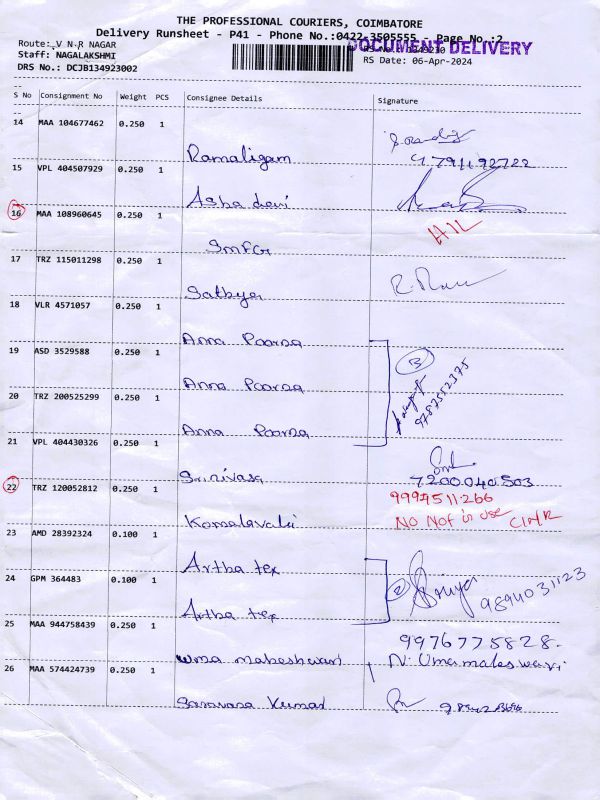 THE PROFESSIONAL COURIERS, COIMBATORE
Delivery Runsheet - P41 - Phone No.:0422-3505555 Page No.:2
Route: V N R NAGAR
DOCUMENT DELIVERY
Staff: NAGALAKSHMI
DRS No.: DCJB134923002
RS Date: 06-Apr-2024
S No Consignment No Weight PCS Consignee Details Signature
14 MAA 104677462 0.250 1
Ramaligam 9791192722
15 VPL 404507929 0.250 1
Asha devi
16 MAA 108960645 0.250 1
SMFG
17 TRZ 115011298 0.250 1
Sathya
18 VLR 4571057 0.250 1
Anna Poorna
19 ASD 3529588 0.250 1 3
Anna Poorna 9787552375
20 TRZ 200525299 0.250 1
Anna Poorna
21 VPL 404430326 0.250 1
Srinivasa 7200040503
22 TRZ 120052812 0.250 1 9994511266
Komalavalli No Not in use
23 AMD 28392324 0.100 1
Artha tex
24 GPM 364483 0.100 1 2 Priya 9894031123
Artha tex
25 MAA 944758439 0.250 1 9976775828.
Uma maheshwari N. Umamaheswari
26 MAA 574424739 0.250 1
Saravana Kumar